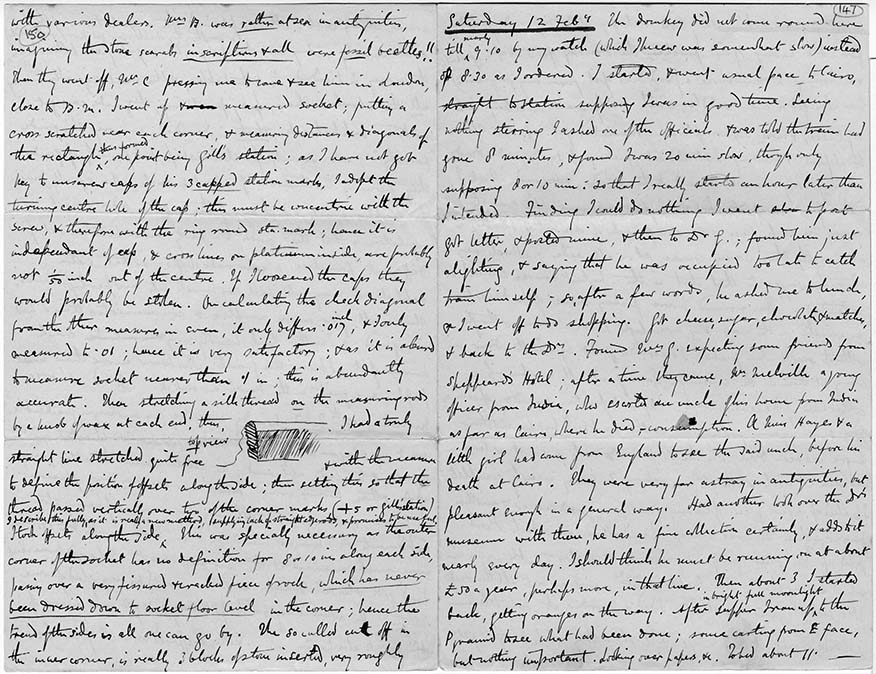 150
with various dealers. Mrs B. was rather at sea in antiquities,
imagining the stone scarabs inscriptions & all were fossil beetles!!
Then they went off, Mr C pressing me to come & see him in London,
close to B.M. I went up & measured socket; putting a
cross scratched near each corner, & measuring distances & diagonals of
the rectangle thus formed, one point being Gill's station; as I have not got
key to unscrew caps of his 3 capped station marks, I adopt the
turning centre hole of the cap: this must be concentric with the
screw, & therefore with the ring round stn. mark; hence it is
independant of cap, & cross lines on platinum inside, are probably
not 1/50 inch out of the centre. If I loosened the caps they
would probably be stolen. On calculating the check diagonal
from the other measures in even, it only differs .017 inch, & I only
measured to .01; hence it is very satisfactory; & as it is absurd
to measure socket nearer than .1 in; this is abundantly
accurate. Then stretching a silk thread on the measuring rods
by a knob of wax at each end, thus, I had a truly
top view
straight line stretched quite free & with the measure
to define the position of offsets along the side; then setting this so that the
thread passed vertically over two of the corner marks (+s or Gill's station)
I describe this fully, as it is really a new method, supplying lack of straight edge rods & promises to be useful.
I took offsets along the side. This was specially necessary as the outer
corner of the socket has no definition for 8 or 10 in along each side,
passing over a very fissured & cracked piece of rock, which has never
been dressed down to socket floor level in the corner; hence the
trend of the sides is all one can go by. The so called cut off in
the inner corner, is really 3 blocks of stone inserted, very roughly
147
Saturday 12 Feby The donkey did not come round here
till nearly 9.10 by my watch (which I knew was somewhat slow) instead
of 8.30 as I ordered. I started, & went usual pace to Cairo,
straight to station supposing I was in good time. Seeing
nothing stirring I asked one of the officials & was told the train had
gone 8 minutes, & found I was 20 min slow, though only
supposing 8 or 10 min: so that I really started an hour later than
I intended. Finding I could do nothing I went to post
got letter, & posted mine, & then to Dr G.; found him just
alighting, & saying that he was occupied too late to catch
train himself; so after a few words, he asked me to lunch,
& I went off to do shopping. Got cheese, sugar, chocolate, & matches,
& back to the Drs. Found Mrs G. expecting some friends from
Sheppeard's Hotel; after a time they came, Mr Melville a young
officer from India, who escorted an uncle of his home from India
as far as Cairo, where he died – consumption. A Miss Haye & a
little girl had come from England to see the said uncle, before his
death at Cairo. They were very far astray in antiquities, but
pleasant enough in a general way. Had another look over the Drs
museum with them, he has a fine collection certainly, & adds to it
nearly every day. I should think he must be running on at about
£50 a year, perhaps more, in that line. Then about 3 I started
back, getting oranges on the way. After supper in bright full moonlight I ran up to the
Pyramid to see what had been done; some carting from E face,
but nothing important. Looking over papers, &c. To bed about 11. —